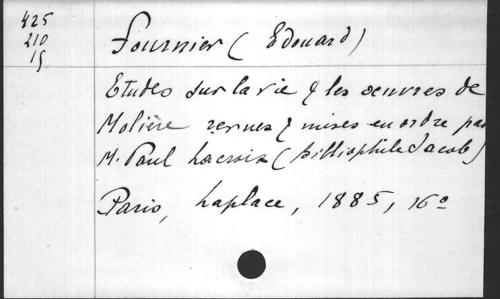 425
210
15
Fournier (Edouard)
Etudes sur la vie & les oeuvres de
Molière revues & mises en ordre par
M. Paul Lacroix (bibliophile Jacob)
Paris, Laplace, 1885, 16º